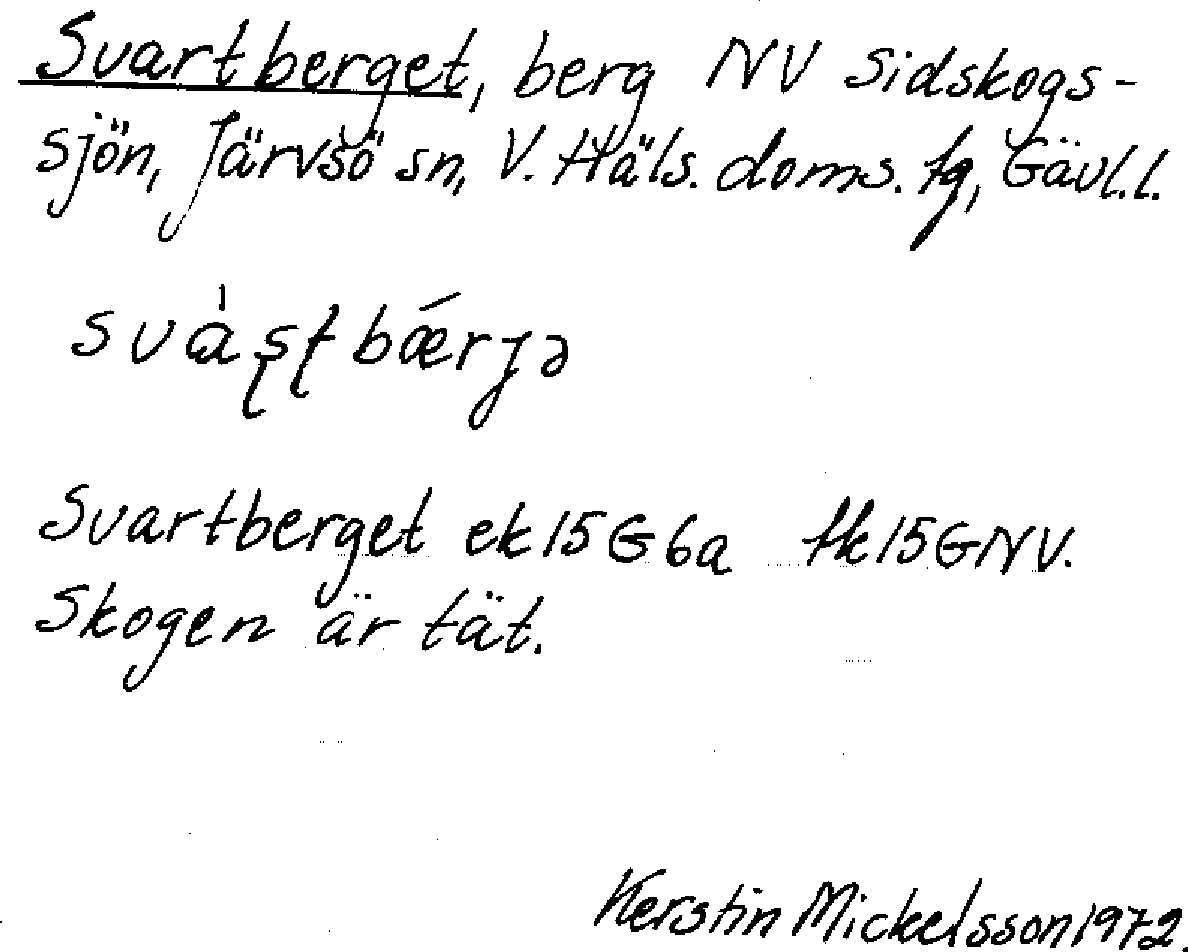 Svartberget, berg NV Sidskogs-
sjön, Järvsö sn, V. Häls. doms. tg, Gävl.l.
svàʂʈbǽrɟə
Svartberget ek 15G6a tk 15GNV.
Skogen är tät.
Kerstin Mickelsson 1972.